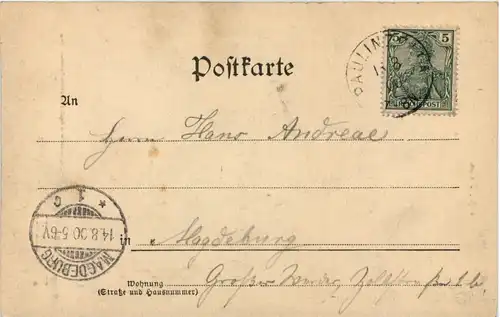 PAULIN
5 5
REICHSPOST
Postkarte
An
Herrn Hans Andreae
* 1 c
14.8.00 5-6V
MAGDEBURG
in Magdeburg
Wohnung
(Straße und Hausnummer)
Großer Werder, Zollstraße